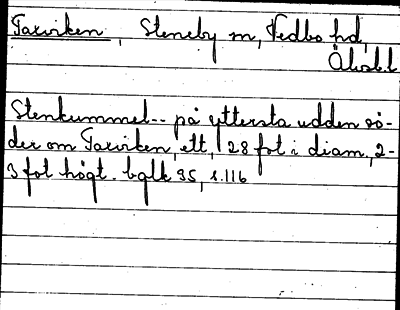 Taxviken, Steneby sn, Vedbo hd,
Älvsb.l
Stenkummel-- på yttersta udden sö-
der om Taxviken, ett, 28 fot i diam., 2-
3 fot högt. bglk 35, s.116